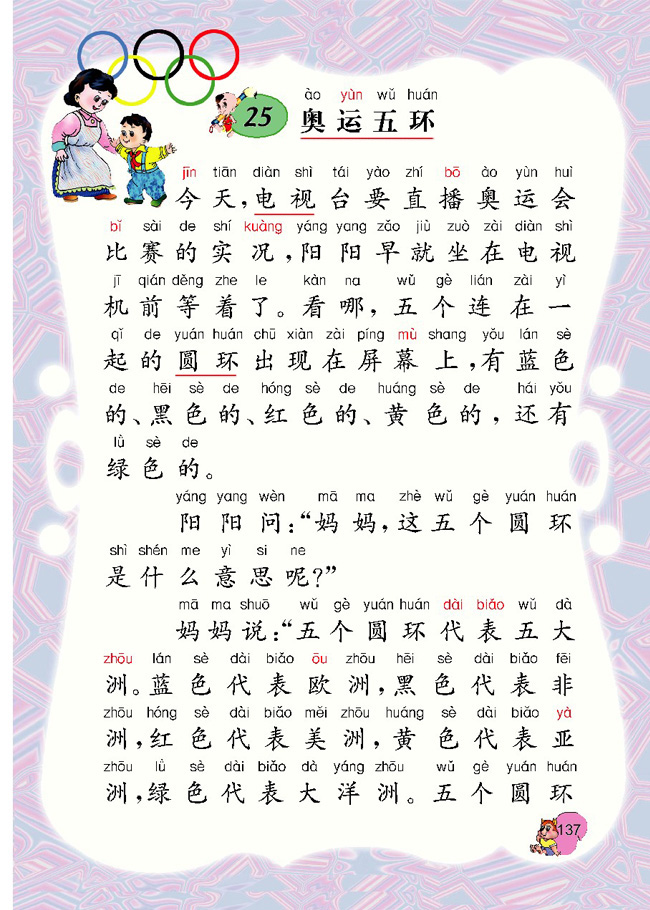 ào yùn wǔ huán
25 奥运五环
jīn tiān diàn shì tái yào zhí bō ào yùn huì
今天,电视台要直播奥运会
bǐ sài de shí kuàng yáng yang zǎo jiù zuò zài diàn shì
比赛的实况,阳阳早就坐在电视
jī qián děng zhe le kàn na wǔ gè lián zài yì
机前等着了。看哪,五个连在一
qǐ de yuán huán chū xiàn zài píng mù shang yǒu lán sè
起的圆环出现在屏幕上,有蓝色
de hēi sè de hóng sè de huáng sè de hái yǒu
的、黑色的、红色的、黄色的,还有
lǜ sè de
绿色的。
yáng yang wèn mā ma zhè wǔ gè yuán huán
阳阳问:“妈妈,这五个圆环
shì shén me yì si ne
是什么意思呢?”
mā ma shuō wǔ gè yuán huán dài biǎo wǔ dà
妈妈说:“五个圆环代表五大
zhōu lán sè dài biǎo ōu zhōu hēi sè dài biǎo fēi
洲。蓝色代表欧洲,黑色代表非
zhōu hóng sè dài biǎo měi zhōu huáng sè dài biǎo yà
洲,红色代表美洲,黄色代表亚
zhōu lǜ sè dài biǎo dà yáng zhōu wǔ gè yuán huán
洲,绿色代表大洋洲。五个圆环
137